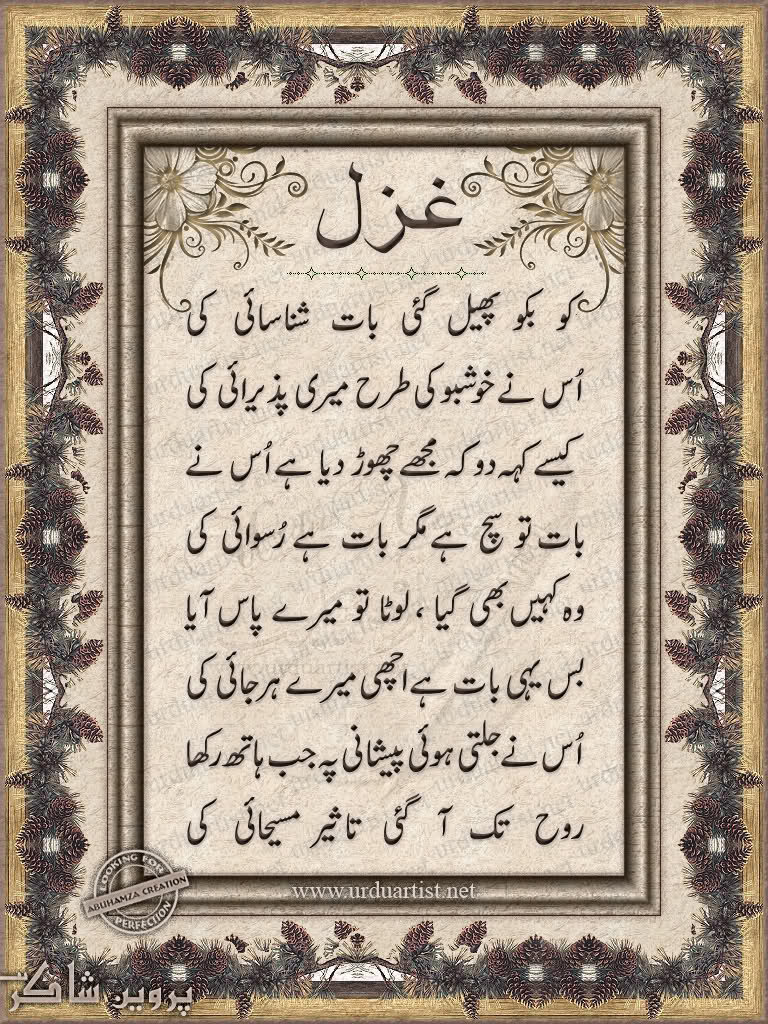 غزل
کو بکو پھیل گئی بات شناسائی کی
اُس نے خوشبو کی طرح میری پذیرائی کی
کیسے کہہ دو کہ مجھے چھوڑ دیا ہے اُس نے
بات تو سچ ہے مگر بات ہے رُسوائی کی
وہ کہیں بھی گیا ، لوٹا تو میرے پاس آیا
بس یہی بات ہے اچھی میرے ہرجائی کی
اُس نے جلتی ہوئی پیشانی پہ جب ہاتھ رکھا
روح تک آ گئی تاثیر مسیحائی کی
www.urduartist.net
LOOKING FOR
ABUHAMZA CREATION
PERFECTION
پروین شاکر